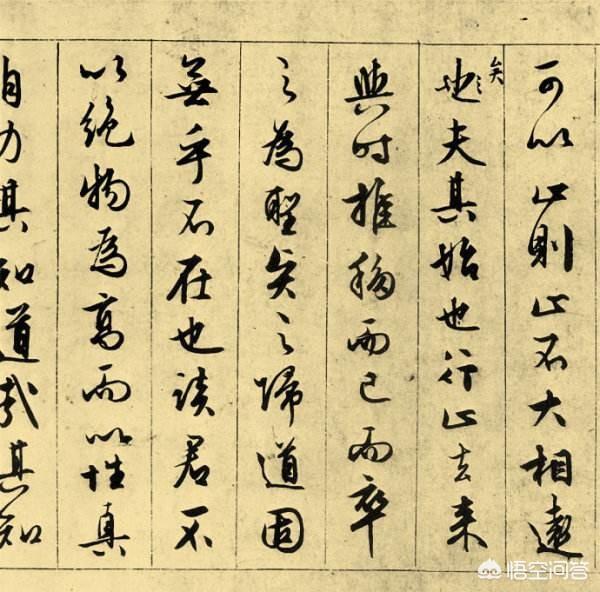 可以止則止不大相遠
也矣夫其始也行止去來
與時推移而已而卒
之為聖矣之歸道固
無乎不在也談君不
以絕物為高而以性真
自力其知道哉其知
悟空问答